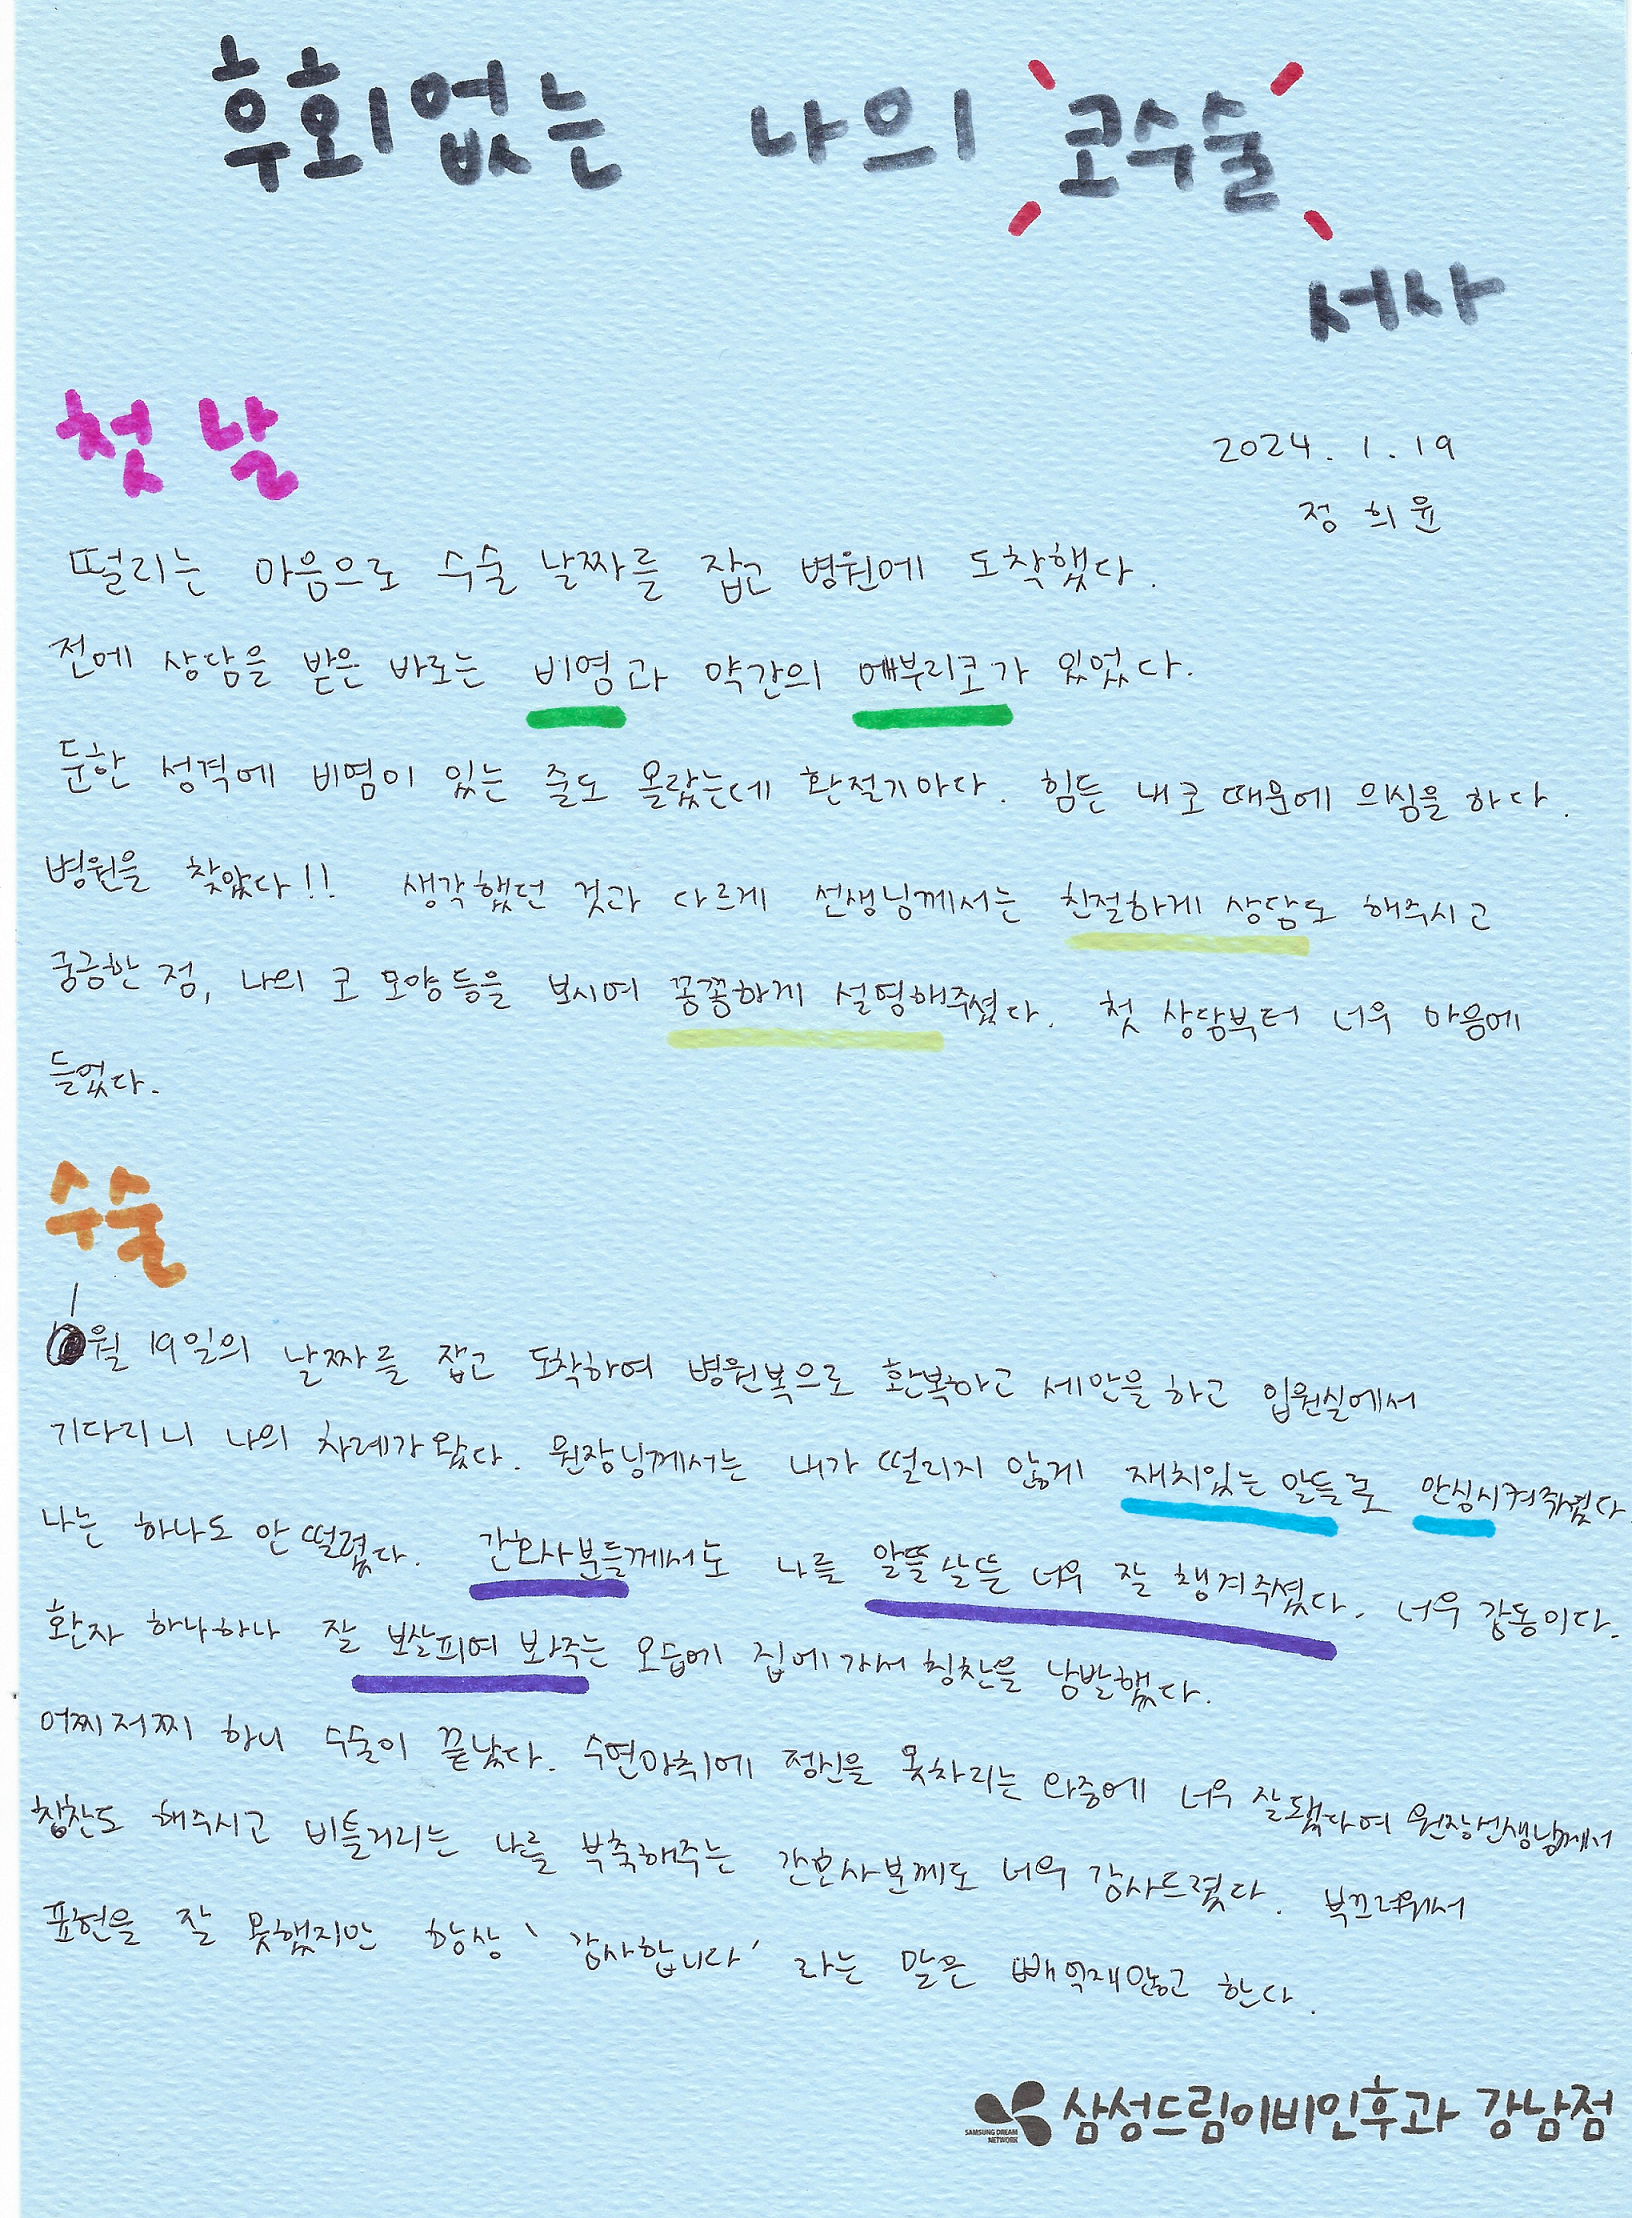 후회없는 나의 코수술
서사
첫날
2024. 1. 19
정희윤
떨리는 마음으로 수술 날짜를 잡고 병원에 도착했다.
전에 상담을 받은 바로는 비염과 약간의 매부리코가 있었다.
둔한 성격에 비염이 있는 줄도 몰랐는데 환절기마다. 힘든 내 코 때문에 의심을 하다.
병원을 찾았다!! 생각했던 것과 다르게 선생님께서는 친절하게 상담도 해주시고
궁금한 점, 나의 코 모양 등을 보시며 꼼꼼하게 설명해주셨다. 첫 상담부터 너무 마음에
들었다.
수술
1
월 19일의 날짜를 잡고 도착하여 병원복으로 환복하고 세안을 하고 입원실에서
기다리니 나의 차례가 왔다. 원장님께서는 내가 떨리지 않게 재치있는 말들로 안심시켜주셨다
나는 하나도 안 떨렸다. 간호사분들께서도 나를 알뜰살뜰 너무 잘 챙겨주셨다. 너무 감동이다.
환자 하나하나 잘 보살피며 봐주는 모습에 집에 가서 칭찬을 남발했다.
어찌저찌 하니 수술이 끝났다. 수면마취에 정신을 못차리는 와중에 너무 잘됐다며 원장선생님께서
칭찬도 해주시고 비틀거리는 나를 부축해주는 간호사분께도 너무 감사드렸다. 부끄러워서
표현을 잘 못했지만 항상 '감사합니다' 라는 말은 빼먹재않고 한다.
SAMSUNG DREAM
NETWORK
삼성드림이비인후과 강남점